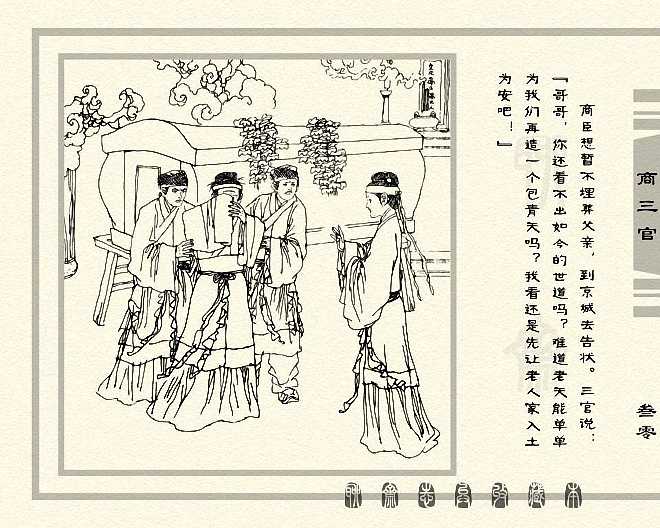 商臣想暂不埋葬父亲，到京城去告状。三官说：
『哥哥，你还看不出如今的世道吗？难道老天能单单
为我们再造一个包青天吗？我看还是先让老人家入土
为安吧！』
商三官
叁零
聊斋志异收藏本